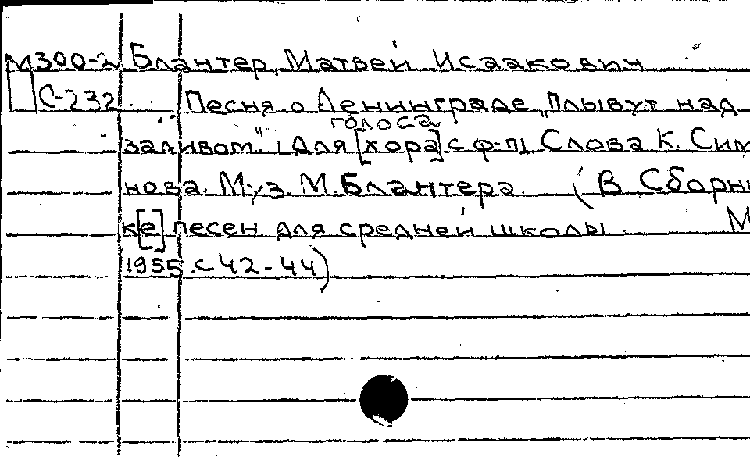 М300-2 Блантер, Матвей Исаакович
С-232 Песня о Ленинграде „Плывут над
голоса
заливом". [Для [хора] с ф-п] Слова К. Сим
нова. Муз. М. Блантера. (В Сборни
к[е] песен для средней школы. М
1955. с 42-44)